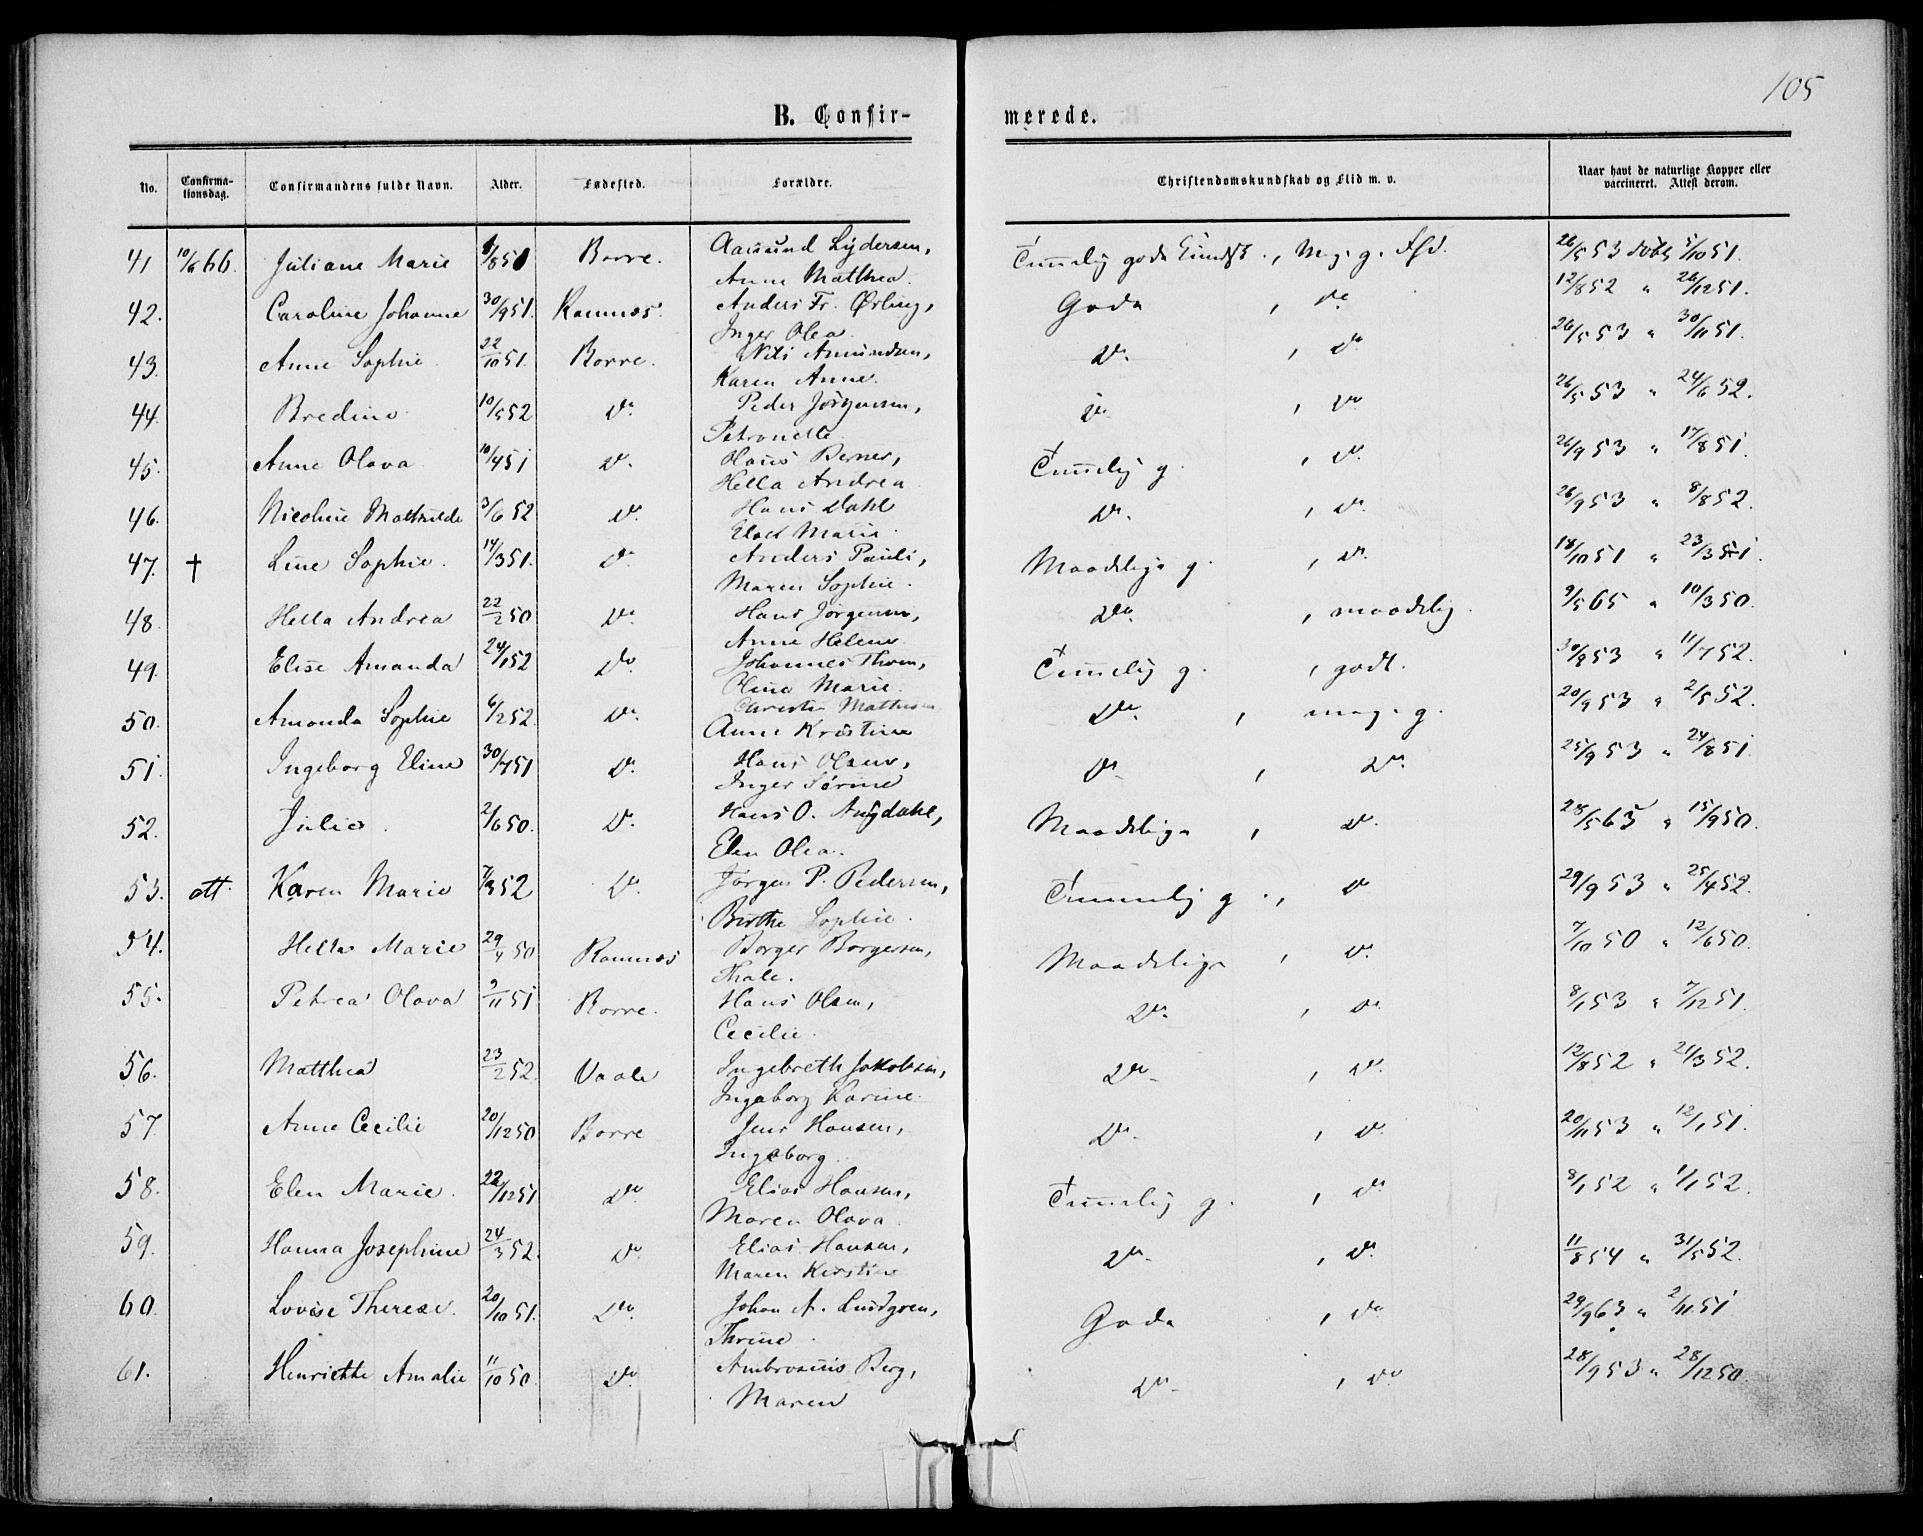 105
B. Confir- merede.
No. Confirma-tionsdag. Confirmandens fulde Navn. Alder. Fødested. Forældre. Christendomskundskab og Flid m. v. Naar havt de naturlige Kopper eller vaccineret. Attest derom.
41 10/6 66. Juliane Marie /8 51 Borre. Aamund Lydersen, Tmelig gode Kundsk., Meg. g. Fld. 26/5 53 døbt 5/10 51.
Anne Matthea.
42. Caroline Johanne 30/9 51. Ramnæs. Anders Fr. Ørling, Gode , do 12/8 52 " 26/12 51.
Inger Olea.
43. Anne Sophie 22/10 51. Borre. Nils Amundsen, Do. , do 26/5 53 " 30/11 51.
Karen Anne.
44. Bredine 10/5 52 Do. Peder Jørgensen, Do , Do 26/5 53 " 24/6 52.
Petronelle
45. Anne Olava 10/4 51 Do. Olaus Berner, Tmelig g. , do. 26/9 53 " 17/8 51.
Hella Andrea
46. Nicoline Mathilde 3/6 52 Do. Hans Dahl Do. , do. 26/9 53 " 8/8 52.
Marie
47. † Line Sophie. 14/3 51. Do Anders Pauli, Maadelige g. , do. 18/10 51 " 23/3 51.
Maren Sophie.
48. Hella Andrea 22/2 50 Do Hans Jørgensen, Do. , maadelig. 9/5 65 " 10/3 50.
Anne Helene
49. Elise Amanda 24/1 52 Do Johannes Thom, Tmelig g. , godt. 30/9 53 " 11/7 52.
Oline Marie.
50. Amanda Sophie 6/2 52. Do. Christen Mathisen Do. , meg. g. 20/9 53 " 2/5 52.
Anne Kristine
51. Ingeborg Eline 30/7 51 Do. Hans Olsen, Do , Do. 25/9 53 " 24/8 51.
Inger Sørine
52. Julie. 21/6 50. Do. Hans O. Augdahl, Maadelige , do. 28/5 63 " 15/9 50.
Elen Olea.
53. att. Karen Marie 7/3 52 Do. Jørgen P. Pedersen, Tmmelig g. , do 29/9 53 " 25/4 52.
Birthe Sophie.
54. Hella Marie 29/4 50 Ramnæs Borger Borgersen, Maadelige , do. 7/10 50 " 12/6 50.
Thale.
55. Petrea Olava 9/11 51 Borre. Hans Olsen, Do. , do. 8/1 53 " 7/12 51.
Cecilie.
56. Matthea 23/2 52. Vaale Ingebreth Jakobsen, Do. , do. 12/8 52 " 21/3 52.
Ingeborg Karine.
57 Anne Cecilie 20/12 50 Borre Jens Hansen, Do. , do. 20/11 53 " 12/1 51.
Ingeborg.
58. Elen Marie. 22/12 51 Do. Elias Hansen, Tmmelig g. , do 8/1 52 " 1/1 52.
Maren Olava.
59. Hanna Josephine 24/3 52. Do. Elias Hansen, Do. , do. 11/8 54 " 31/5 52.
Maren Kirstine
60. Lovise Therese. 20/10 51. Do. Johan A. Lundgren, Gode , do 29/9 63 " 2/11 51
Thrine.
61. Henriette Amalie 11/10 50 Do. Ambrosius Berg, Do. , do 28/9 53 " 28/12 50.
Maren